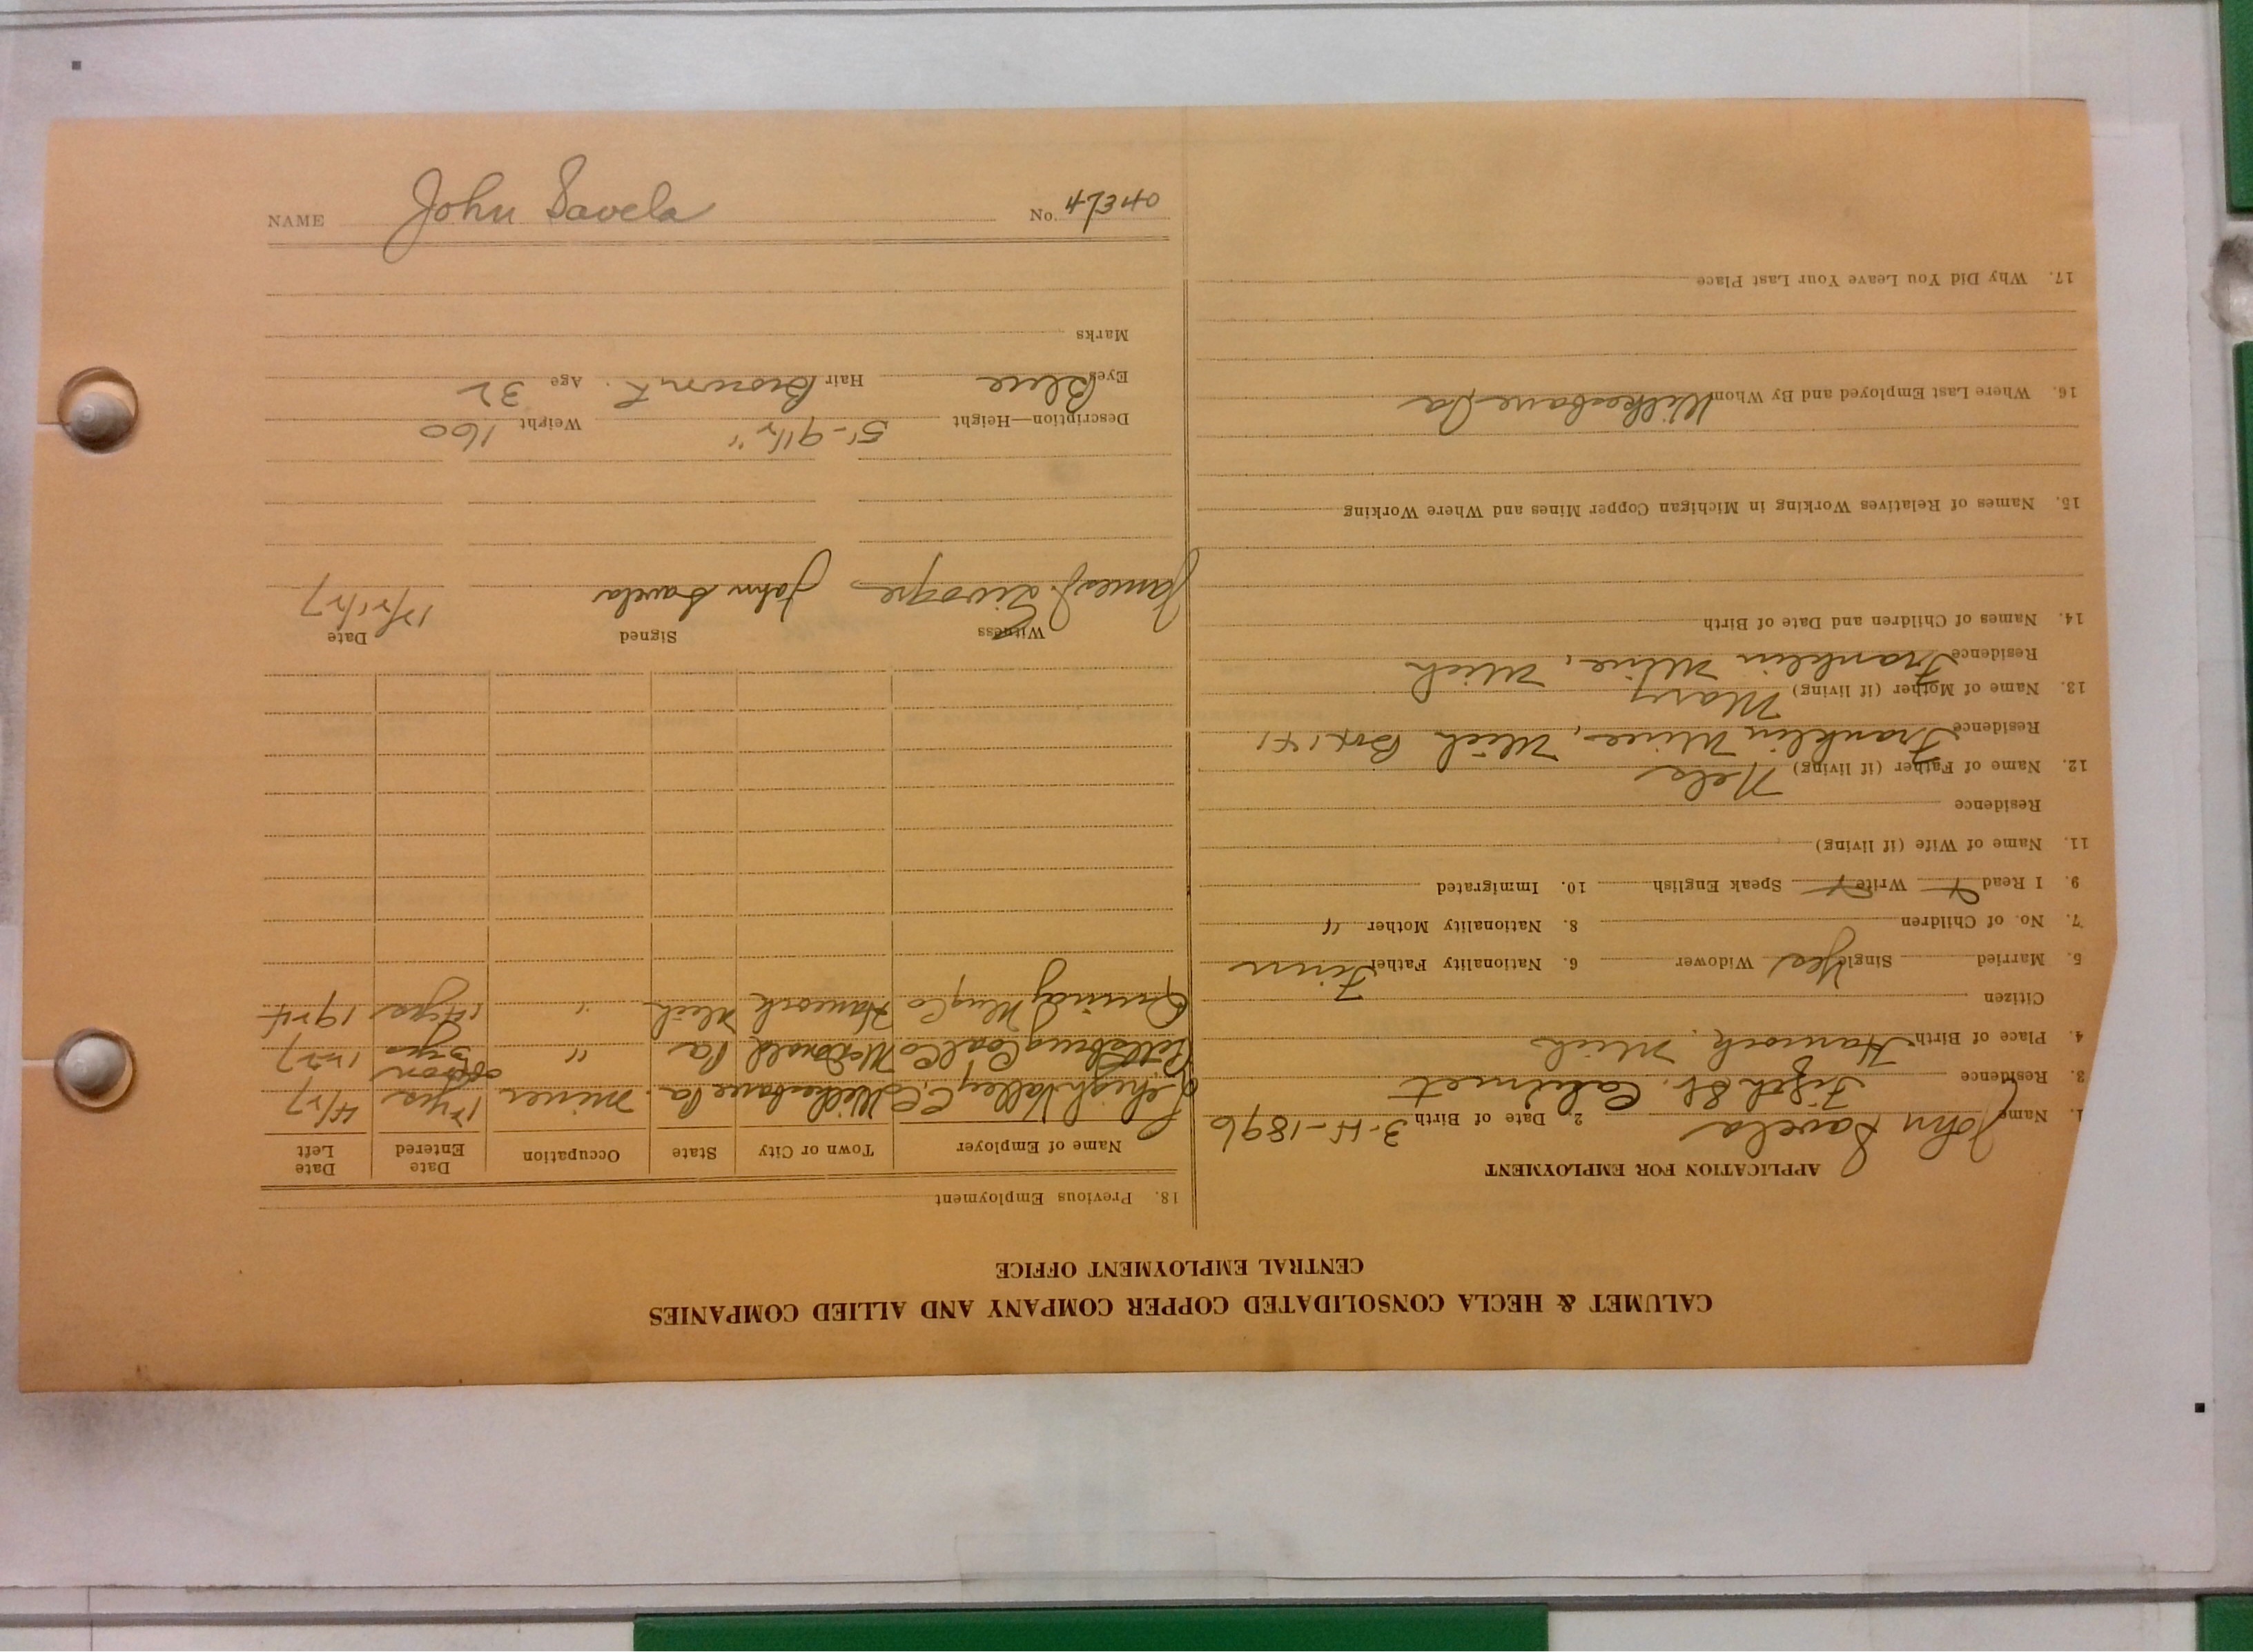 NAME John Savela No. 47340
CALUMET & HECLA CONSOLIDATED COPPER COMPANY AND ALLIED COMPANIES
CENTRAL EMPLOYMENT OFFICE
APPLICATION FOR EMPLOYMENT
1. Name John Savela 2. Date of Birth 3-4-1896
3. Residence Calumet
4. Place of Birth Hancock, Mich
Citizen
5. Married Single Yes Widower 6. Nationality Father Finn
7. No. of Children 8. Nationality Mother "
9. I Read Write Speak English 10. Immigrated
11. Name of Wife (if living)
Residence
12. Name of Father (if living) Nels
Residence Franklin Mine, Mich Box 141
13. Name of Mother (if living) Mary
Residence Franklin Mine, Mich
14. Names of Children and Date of Birth
15. Names of Relatives Working in Michigan Copper Mines and Where Working
16. Where Last Employed and By Whom Wilkesbarre Pa
17. Why Did You Leave Your Last Place
18. Previous Employment
Name of Employer Town or City State Occupation Date Entered Date Left
Lehigh Valley C.C. Wilkesbarre Pa. miner 4/27
Pittsburg Coal Co McDonald Pa " 3 yrs 1927
Quincy Mng Co Hancock Mich " 1924
Witness Signed Date
James J. John Savela 12/21/27
Description—Height 5'-9 1/2" Weight 160
Eyes Blue Hair Brown Age 32
Marks